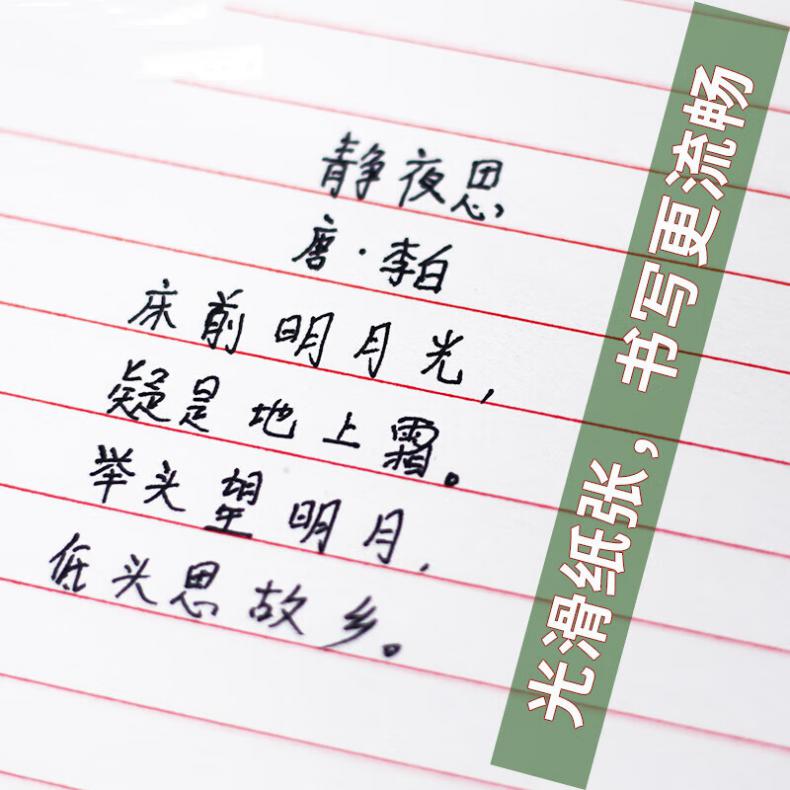 静夜思
唐·李白
床前明月光，
疑是地上霜。
举头望明月，
低头思故乡。
光滑纸张，书写更流畅